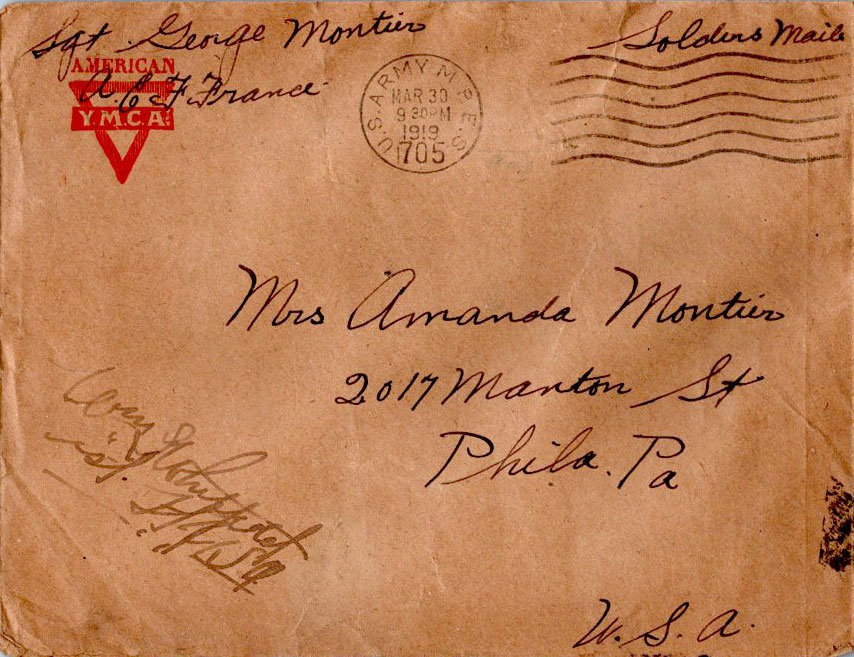 Sgt. George Montier
Soldiers Mail
AMERICAN
A.E.F. France.
Y.M.C.A.
U.S. ARMY M.P.E.S.
MAR 30
9 30PM
1919
705
Mrs Amanda Montier
2017 Manton St
Phila. Pa
U.S.A.